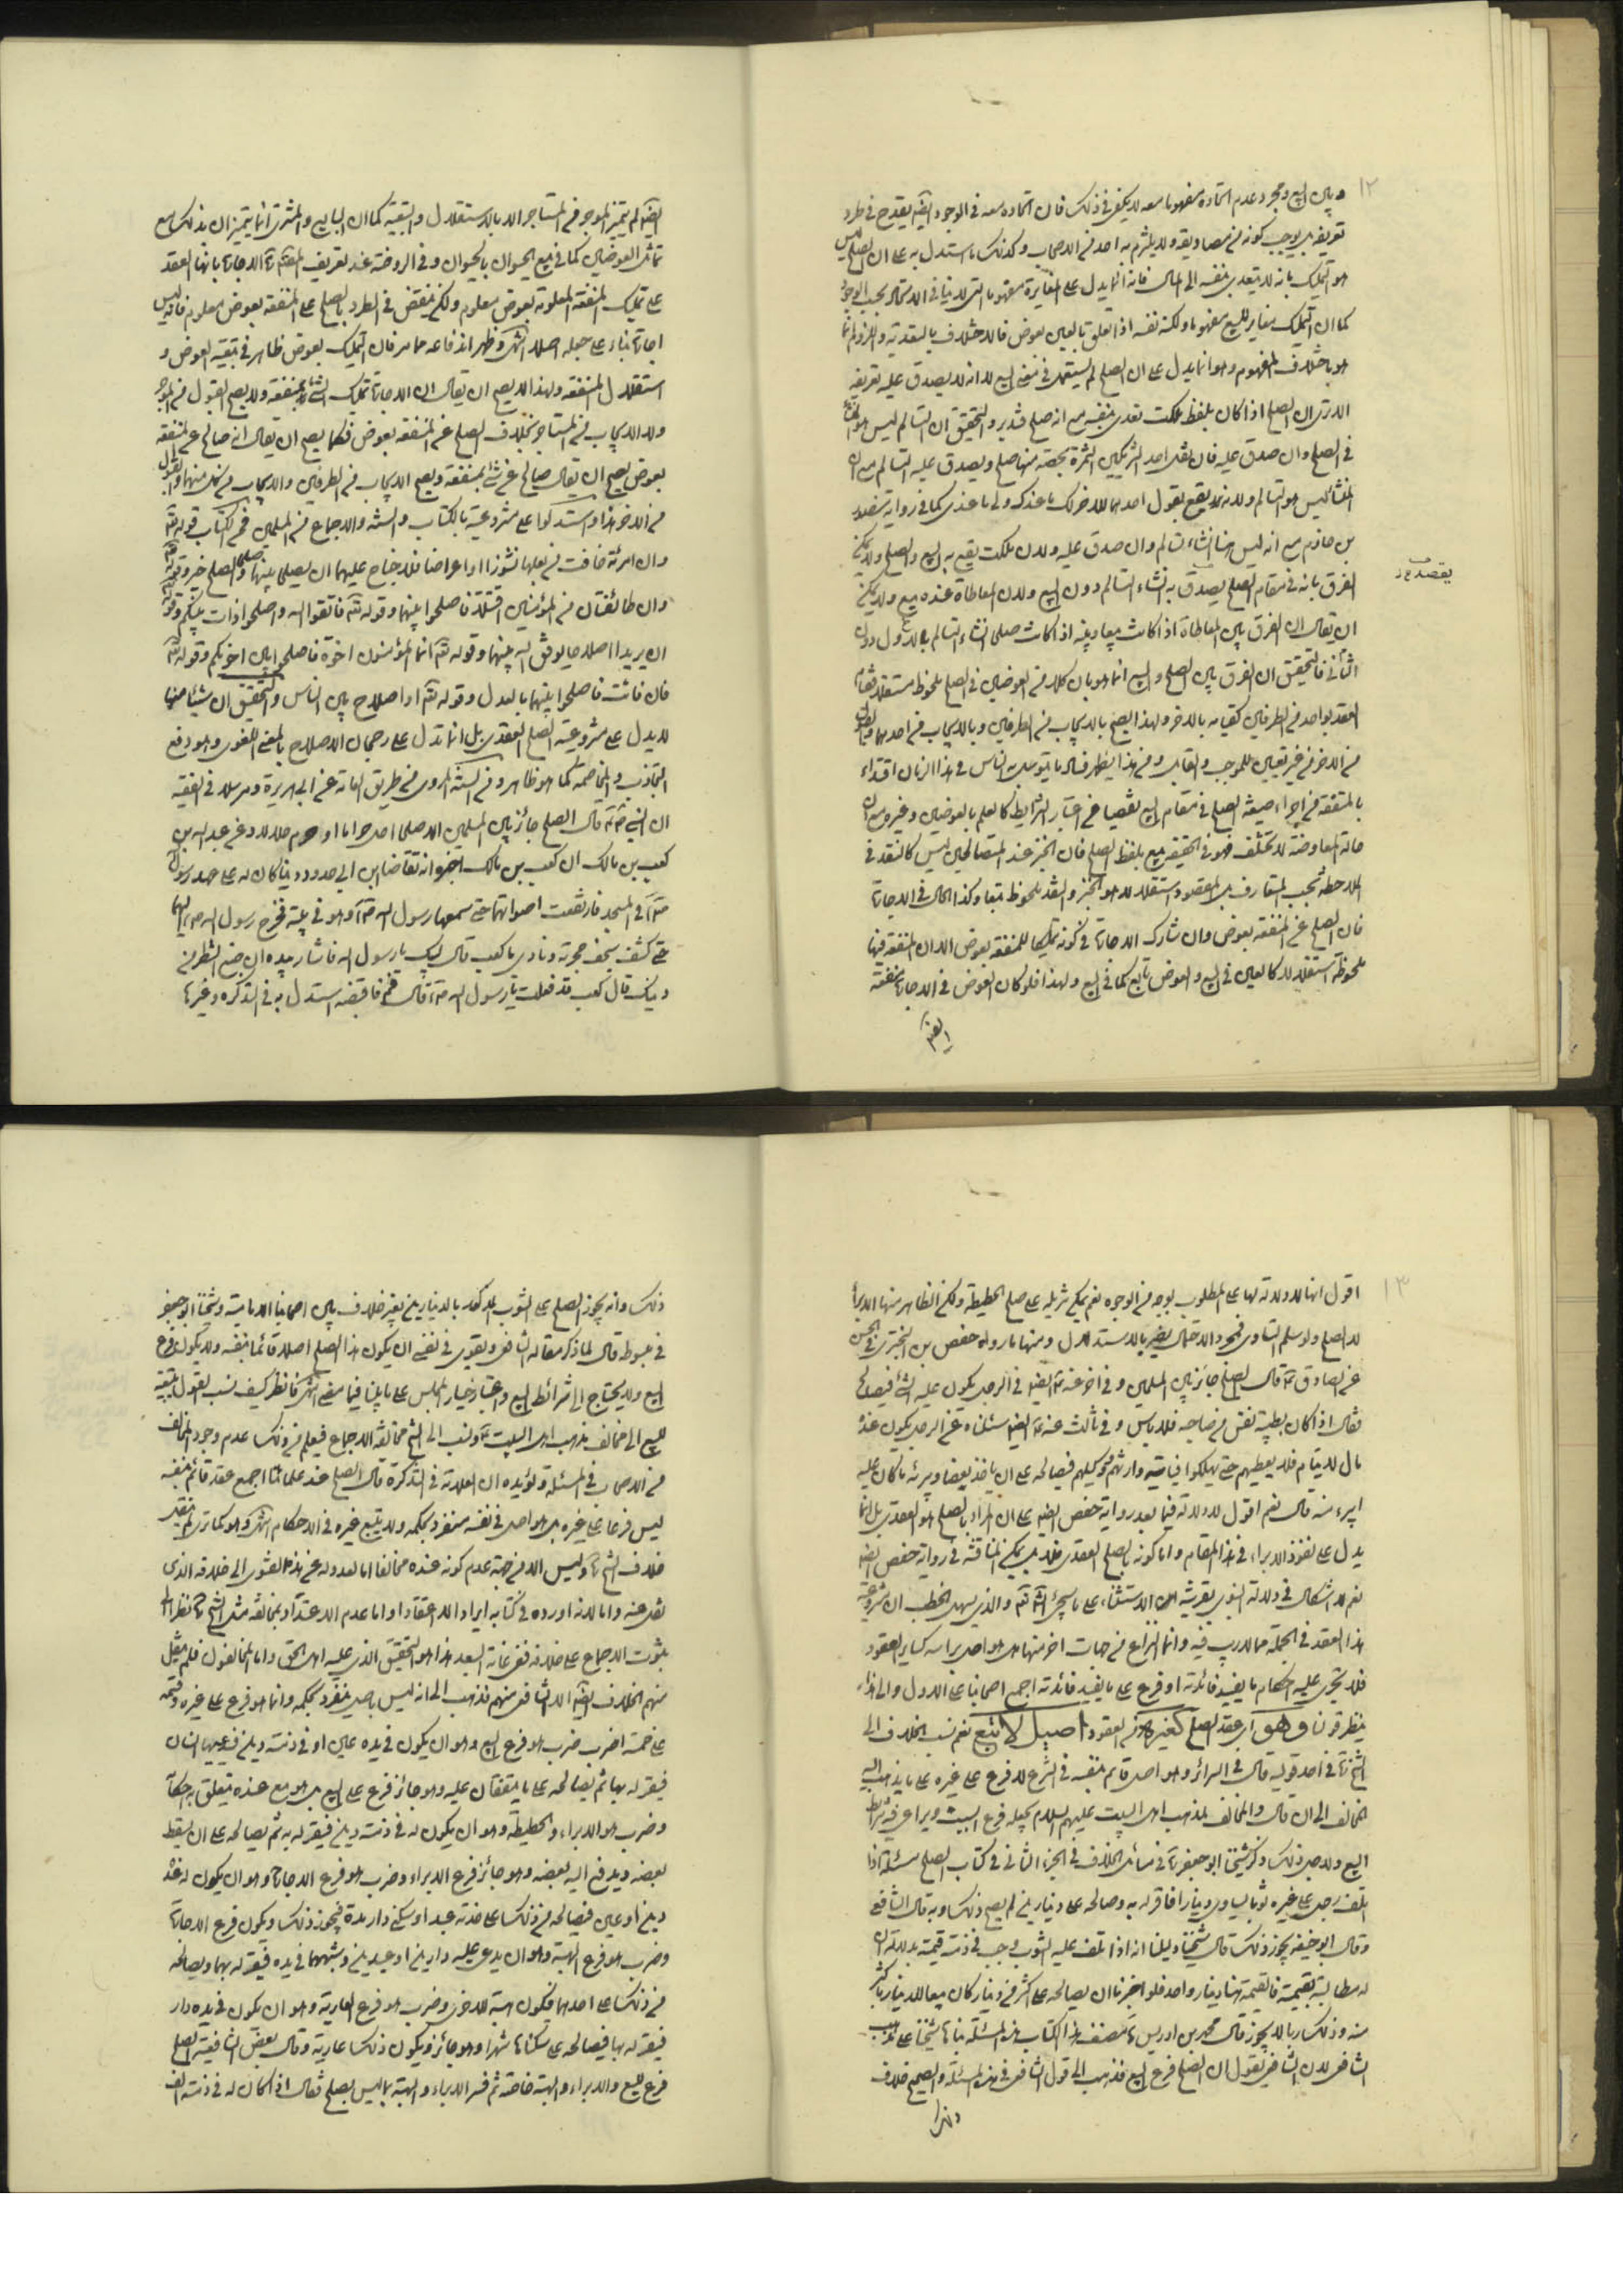 ١٢
و بين البيع ومجرد عدم اتحاده مفهوما معه لا يكفي في ذلك فان اتحاده معه في الوجود ايضا يقدح في طرد
تعريفه بل يوجب كونه من مصاديقه ولا يلتزم به احد من الاصحاب وكذلك ما استدل به على ان الصلح ليس
هو التمليك بانه لا يتعدى بنفسه الى المال فانه انما يدل على مغايرة مفهوما التي لا تنافي الاتحاد بحسب الوجود
كما ان التمليك مغاير للبيع مفهوما ولكنه نفسه اذا تعلق بالعين بعوض فالاختلاف بالتعدية واللزوم انما
هو باختلاف المفهوم وهو انما يدل على ان الصلح لم يستعمل في معنى البيع لا انه لا يصدق عليه تعريفه
الا ترى ان الصلح اذا كان بلفظ ملكت تعدى بنفسه مع انه صلح فتدبر والتحقيق ان التسالم ليس هو
في الصلح وان صدق عليه فان تقبل احد الشريكين الثمرة بحصة منها صلح ويصدق عليه التسالم مع ان
المنشأ ليس هو التسالم ولانه يقع بقول احدهما للاخر لك ما عندك ولي ما عندي كما في رواية منصور
بن حازم مع انه ليس هنا انشاء تسالم وان صدق عليه ولان ملكت يقع به البيع والصلح ولا يمكن
الفرق بانه في مقام الصلح يصدق به انشاء التسالم دون البيع ولان المعاطاة عنده بيع ولا يمكن
يقصد
ان يقال ان الفرق بين المعاطاة اذا كانت بيعا وبينه اذا كانت صلحا انشاء التسالم بالاول دون
الثاني فالتحقيق ان الفرق بين الصلح والبيع انما هو بان كلا من العوضين في الصلح ملحوظ مستقلا
العقد بواحد من الطرفين كقيامه بالاخر ولهذا يصح بالايجاب من الطرفين وبالايجاب من احدهما والقبول
من الاخر من غير تعيين للموجب والقابل ومن هذا يظهر فساد ما يتوسل به الناس في هذا الزمان اقتداء
بالمتفقه من اجراء صيغة الصلح في مقام البيع تفصيا عن اعتبار الشرايط كالعلم بالعوضين وغيره مع ان
حالة المعاوضة لا تختلف فهو في الحقيقة بيع بلفظ الصلح فان الخبز عند المتصالحين ليس كالنقد في
الملاحظة بحسب المتعارف بل المقصود استقلالا هو الخبز والنقد ملحوظ تبعا وكذا الحال في الاجارة
فان الصلح عن المنفعة بعوض وان شارك الاجارة في كونه تمليكا للمنفعة بعوض الا ان المنفعة فيها
ملحوظة استقلالا كالعين في البيع والعوض تابع كما في البيع ولهذا فلو كان العوض في الاجارة منفعة
ايضا
ايضا لم يتميز الموجر من المستاجر الا بالاستقلال والتبعية كما ان البايع والمشتري انما يتميزان بذلك مع
تماثل العوضين كما في بيع الحيوان بالحيوان وفي الروضة عند تعريف الاجارة بانها العقد
على تمليك المنفعة المعلومة بعوض معلوم ولكن ينتقض في الطرد بالصلح على المنفعة بعوض معلوم فانه ليس
اجارة بناء على جعله اصلا انتهى وظهر اندفاعه مما مر فان التمليك بعوض ظاهر في تبعية العوض و
استقلال المنفعة ولهذا لا يصح ان يقال ان الاجارة تمليك الشيء بمنفعة ولا يصح القبول من الموجر
ولا الايجاب من المستاجر بخلاف الصلح عن المنفعة بعوض فكما يصح ان يقال انه صالح عن المنفعة
بعوض يصح ان يقال صالح عن شيء بمنفعة ويصح الايجاب من الطرفين والايجاب من كل منهما والقبول
من الاخر هذا واستدلوا على مشروعيته بالكتاب والسنة والاجماع من المسلمين فمن الكتاب قوله تعالى
وان امرئة خافت من بعلها نشوزا او اعراضا فلا جناح عليهما ان يصلحا بينهما صلحا والصلح خير وقوله تعالى
وان طائفتان من المؤمنين اقتتلا فاصلحوا بينهما وقوله تعالى فاتقوا الله واصلحوا ذات بينكم وقوله تعالى
ان يريدا اصلاحا يوفق الله بينهما وقوله تعالى انما المؤمنون اخوة فاصلحوا بين اخويكم وقوله تعالى
فان فائت فاصلحوا بينهما بالعدل وقوله تعالى او اصلاح بين الناس والتحقيق ان شيئا منها
لا يدل على مشروعية الصلح العقدي بل انما تدل على رجحان الاصلاح بالمعنى اللغوي وهو دفع
التجاذب والمخاصمة كما هو ظاهر ومن السنة المروي من طريق العامة عن ابي هريرة ومرسلا في الفقيه
ان النبي ص قال الصلح جائز بين المسلمين الا صلحا احل حراما او حرم حلالا وعن عبد الله بن
كعب بن مالك ان كعب بن مالك اخبره انه تقاضا ابن ابي حدرد دينا كان له على عهد رسول الله
ص في المسجد فارتفعت اصواتهما حتى سمعها رسول الله ص وهو في بيته فخرج رسول الله ص اليهما
حتى كشف سجف حجرته ونادى يا كعب قال لبيك يا رسول الله فاشار بيده ان ضع الشطر من
دينك قال كعب قد فعلت يا رسول الله ص قال قم فاقضه استدل به في التذكرة وغيرها
١٣
اقول انها لا دلالة لها على المطلوب بوجه من الوجوه نعم يمكن تنزيله على صلح الحطيطة ولكن الظاهر منها الابراء
لا الصلح ولو سلم التساوى فمجرد الاحتمال يضر بالاستدلال ومنها ما رواه حفص بن البختري في الحسن
عن الصادق ع قال الصلح جائز بين المسلمين وفي اخر عنه ع ايضا في الرجل يكون عليه الشيء فيصالح
فقال اذا كان بطيبة نفس من صاحبه فلا باس وفي ثالث عنه ع ايضا سئلناه عن الرجل يكون عنده
مال لايتام فلا يعطيهم حتى يهلكوا فياتيه وارثهم ووكيلهم فيصالحه على ان ياخذ بعضا ويبرئه ما كان عليه
ايبرء منه قال نعم اقول لا دلالة فيما بعد رواية حفص ايضا على ان المراد بالصلح هو العقدي بل انما
يدل على نفوذ الابراء في هذا المقام واما كونه بالصلح العقدي فلا بل يمكن المناقشة في رواية حفص ايضا
نعم لا اشكال في دلالة النبوي بقرينة الاستثناء على ما سيجئ انشاء الله تعالى والذي يسهل الخطب ان مشروعية
هذا العقد في الجملة مما لا ريب فيه وانما النزاع في جهات اخر منها هل هو اصل براسه كساير العقود
فلا تجري عليه احكام ما يفيد فائدته او فرع على ما يفيد فائدته اجمع اصحابنا على الاول والى هذا
ينظر قولنا وهو اي عقد الصلح كغيره من العقود اصيل لا تبع نعم نسب الخلاف الى
الشيخ ره في احد قوليه قال في السرائر وهو اصل قائم بنفسه في الشرع لا فرع على غيره على ما يذهب اليه
المخالف الى ان قال والمخالف لمذهب اهل البيت عليهم السلام يجعله فرع البيع ويراعي فيه شرائط
البيع ولاجل ذلك ذكر شيخنا ابو جعفر ره في مسائل الخلاف في الجزء الثاني في كتاب الصلح مسئلة اذا
اتلف رجل على غيره ثوبا يساوي دينارا فاقر له به وصالحه على دينارين لم يصح ذلك وبه قال الشافعي
وقال ابو حنيفة يجوز ذلك قال شيخنا دليلنا انه اذا اتلف عليه الثوب وجب في ذمته قيمته بدلالة ان
له مطالبته بقيمته فالقيمة هنا دينار واحد فلو اجزنا ان يصالحه على اكثر من دينار كان بيعا للدينار باكثر
منه وذلك ربا لا يجوز قال محمد بن ادريس ره مصنف هذا الكتاب هذه المسئلة بناها شيخنا على مذهب
الشافعي لان الشافعي يقول ان الصلح فرع البيع فذهب الى قول الشافعي في هذه المسئلة والصحيح خلاف
ذلك وانه يجوز الصلح على الثوب المذكور بالدينارين بغير خلاف بين اصحابنا الامامية وشيخنا ابو جعفر
في مبسوطه قال لما ذكر مقالة الشافعي ويقوى في نفسي ان يكون هذا الصلح اصلا قائما بنفسه ولا يكون فرع
البيع ولا يحتاج الى شرائط البيع واعتبار خيار المجلس على ما بيناه فيما مضى انتهى فانظر كيف نسب القول بتبعيته
للبيع الى مخالف مذهب اهل البيت ع ونسب الى الشيخ مخالفة الاجماع فيعلم من ذلك عدم وجود المخالف
من الاصحاب في المسئلة ويؤيده ان العلامة في التذكرة قال الصلح عند علمائنا اجمع عقد قائم بنفسه
ليس فرعا على غيره بل هو اصل في نفسه منفرد بحكمه ولا يتبع غيره في الاحكام انتهى وهو كما ترى لم ينقل
خلاف الشيخ ره وليس الا من جهة عدم كونه عنده مخالفا اما لعدوله عن هذا الفتوى الى خلافه الذي
نقل عنه واما لانه اورده في كتابه ايرادا لا اعتقادا واما عدم الاعتداد بمخالفة مثل الشيخ ره نظرا الى
ثبوت الاجماع على خلافه ففي غاية البعد هذا هو التحقيق الذي عليه اهل الحق واما المخالفون فلم ينقل
منهم الخلاف ايضا الا الشافعي منهم فذهب الى انه ليس باصل ينفرد بحكمه وانما هو فرع على غيره وقسمه
على خمسة اضرب ضرب هو فرع البيع وهو ان يكون في يده عين او في ذمته دين فيدعيها انسان
فيقر له بها ثم يصالحه على ما يتفقان عليه وهو جائز فرع على البيع بل هو بيع عنده يتعلق به احكامه
وضرب هو الابراء والحطيطة وهو ان يكون له في ذمته دين فيقر له به ثم يصالحه على ان يسقط
بعضه ويدفع اليه بعضه وهو جائز فرع الابراء وضرب هو فرع الاجارة وهو ان يكون له عنده
دين او عين فيصالحه من ذلك على خدمة عبد او سكنى دار مدة فيجوز ذلك ويكون فرع الاجارة
وضرب هو فرع الهبة وهو ان يدعي عليه دارين او عبدين وشبههما في يده فيقر له بهما ويصالحه
من ذلك على احدهما فيكون هبة للاخرى وضرب هو فرع العارية وهو ان يكون في يده دار
فيقر له بها فيصالحه على سكناها شهرا وهو جائز ويكون ذلك عارية وقال بعض الشافعية الصلح
فرع للبيع والابراء والهبة خاصة ثم فسر الابراء والهبة بما ليس بصلح فقال اذا كان له في ذمته الف